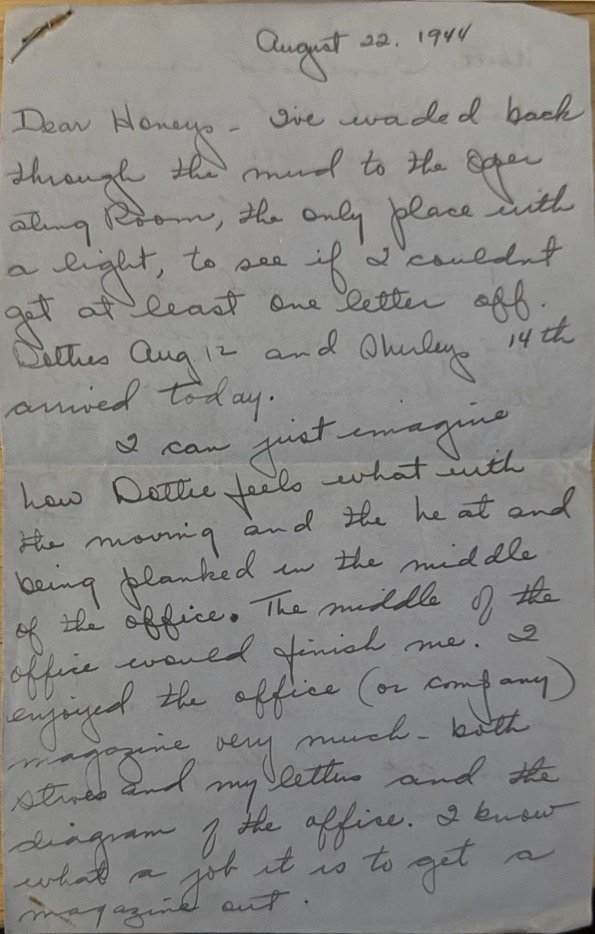 August 22. 1944
Dear Honeys - I've waded back
through the mud to the Oper
ating Room, the only place with
a light, to see if I couldn't
get at least one letter off.
Dotties Aug 12 and Shirleys 14th
arrived today.
I can just imagine
how Dottie feels what with
the moving and the heat and
being planked in the middle
of the office. The middle of the
office would finish me. I
enjoyed the office (or company)
magazine very much - both
Steves and my letters and the
diagram of the office. I know
what a job it is to get a
magazine out.